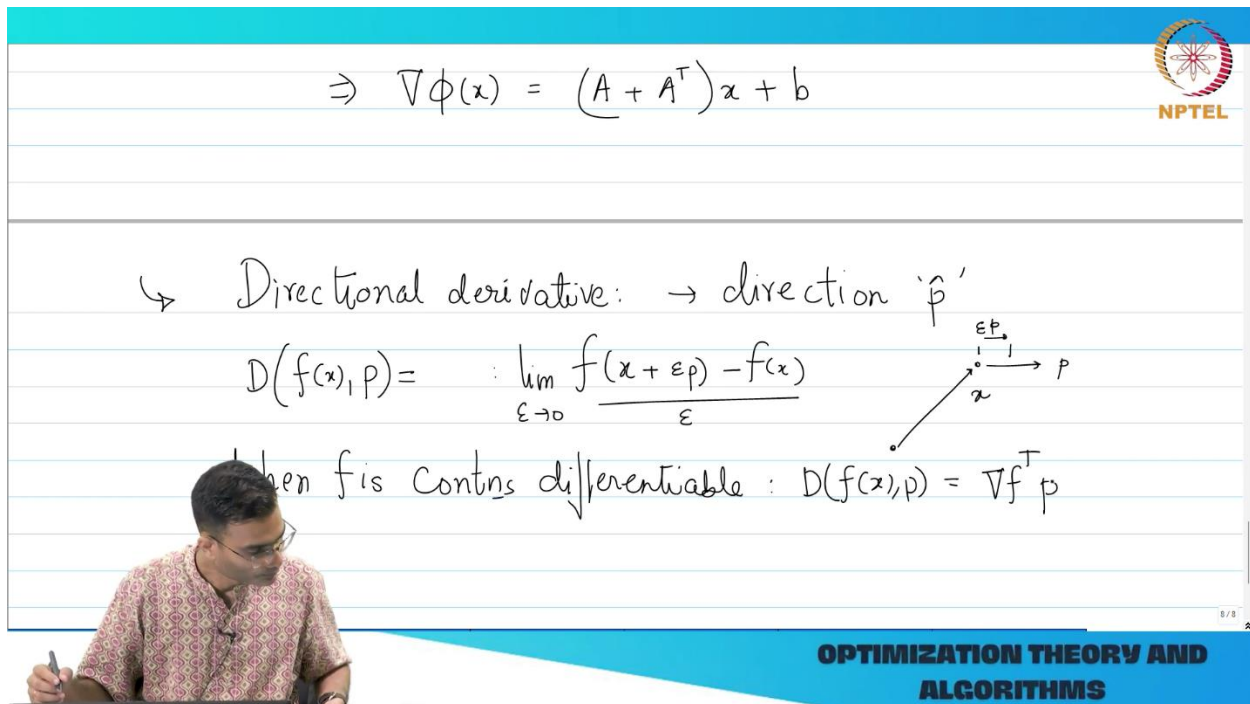 ⇒ ∇ϕ(x) = (A + Aᵀ)x + b
NPTEL
↳ Directional derivative: → direction 'p̂'
εp
D(f(x), p) = : lim_{ε→0} f(x + εp) − f(x) / ε
p
x
hen f is Contns differentiable : D(f(x), p) = ∇fᵀ p
8/8
OPTIMIZATION THEORY AND
ALGORITHMS